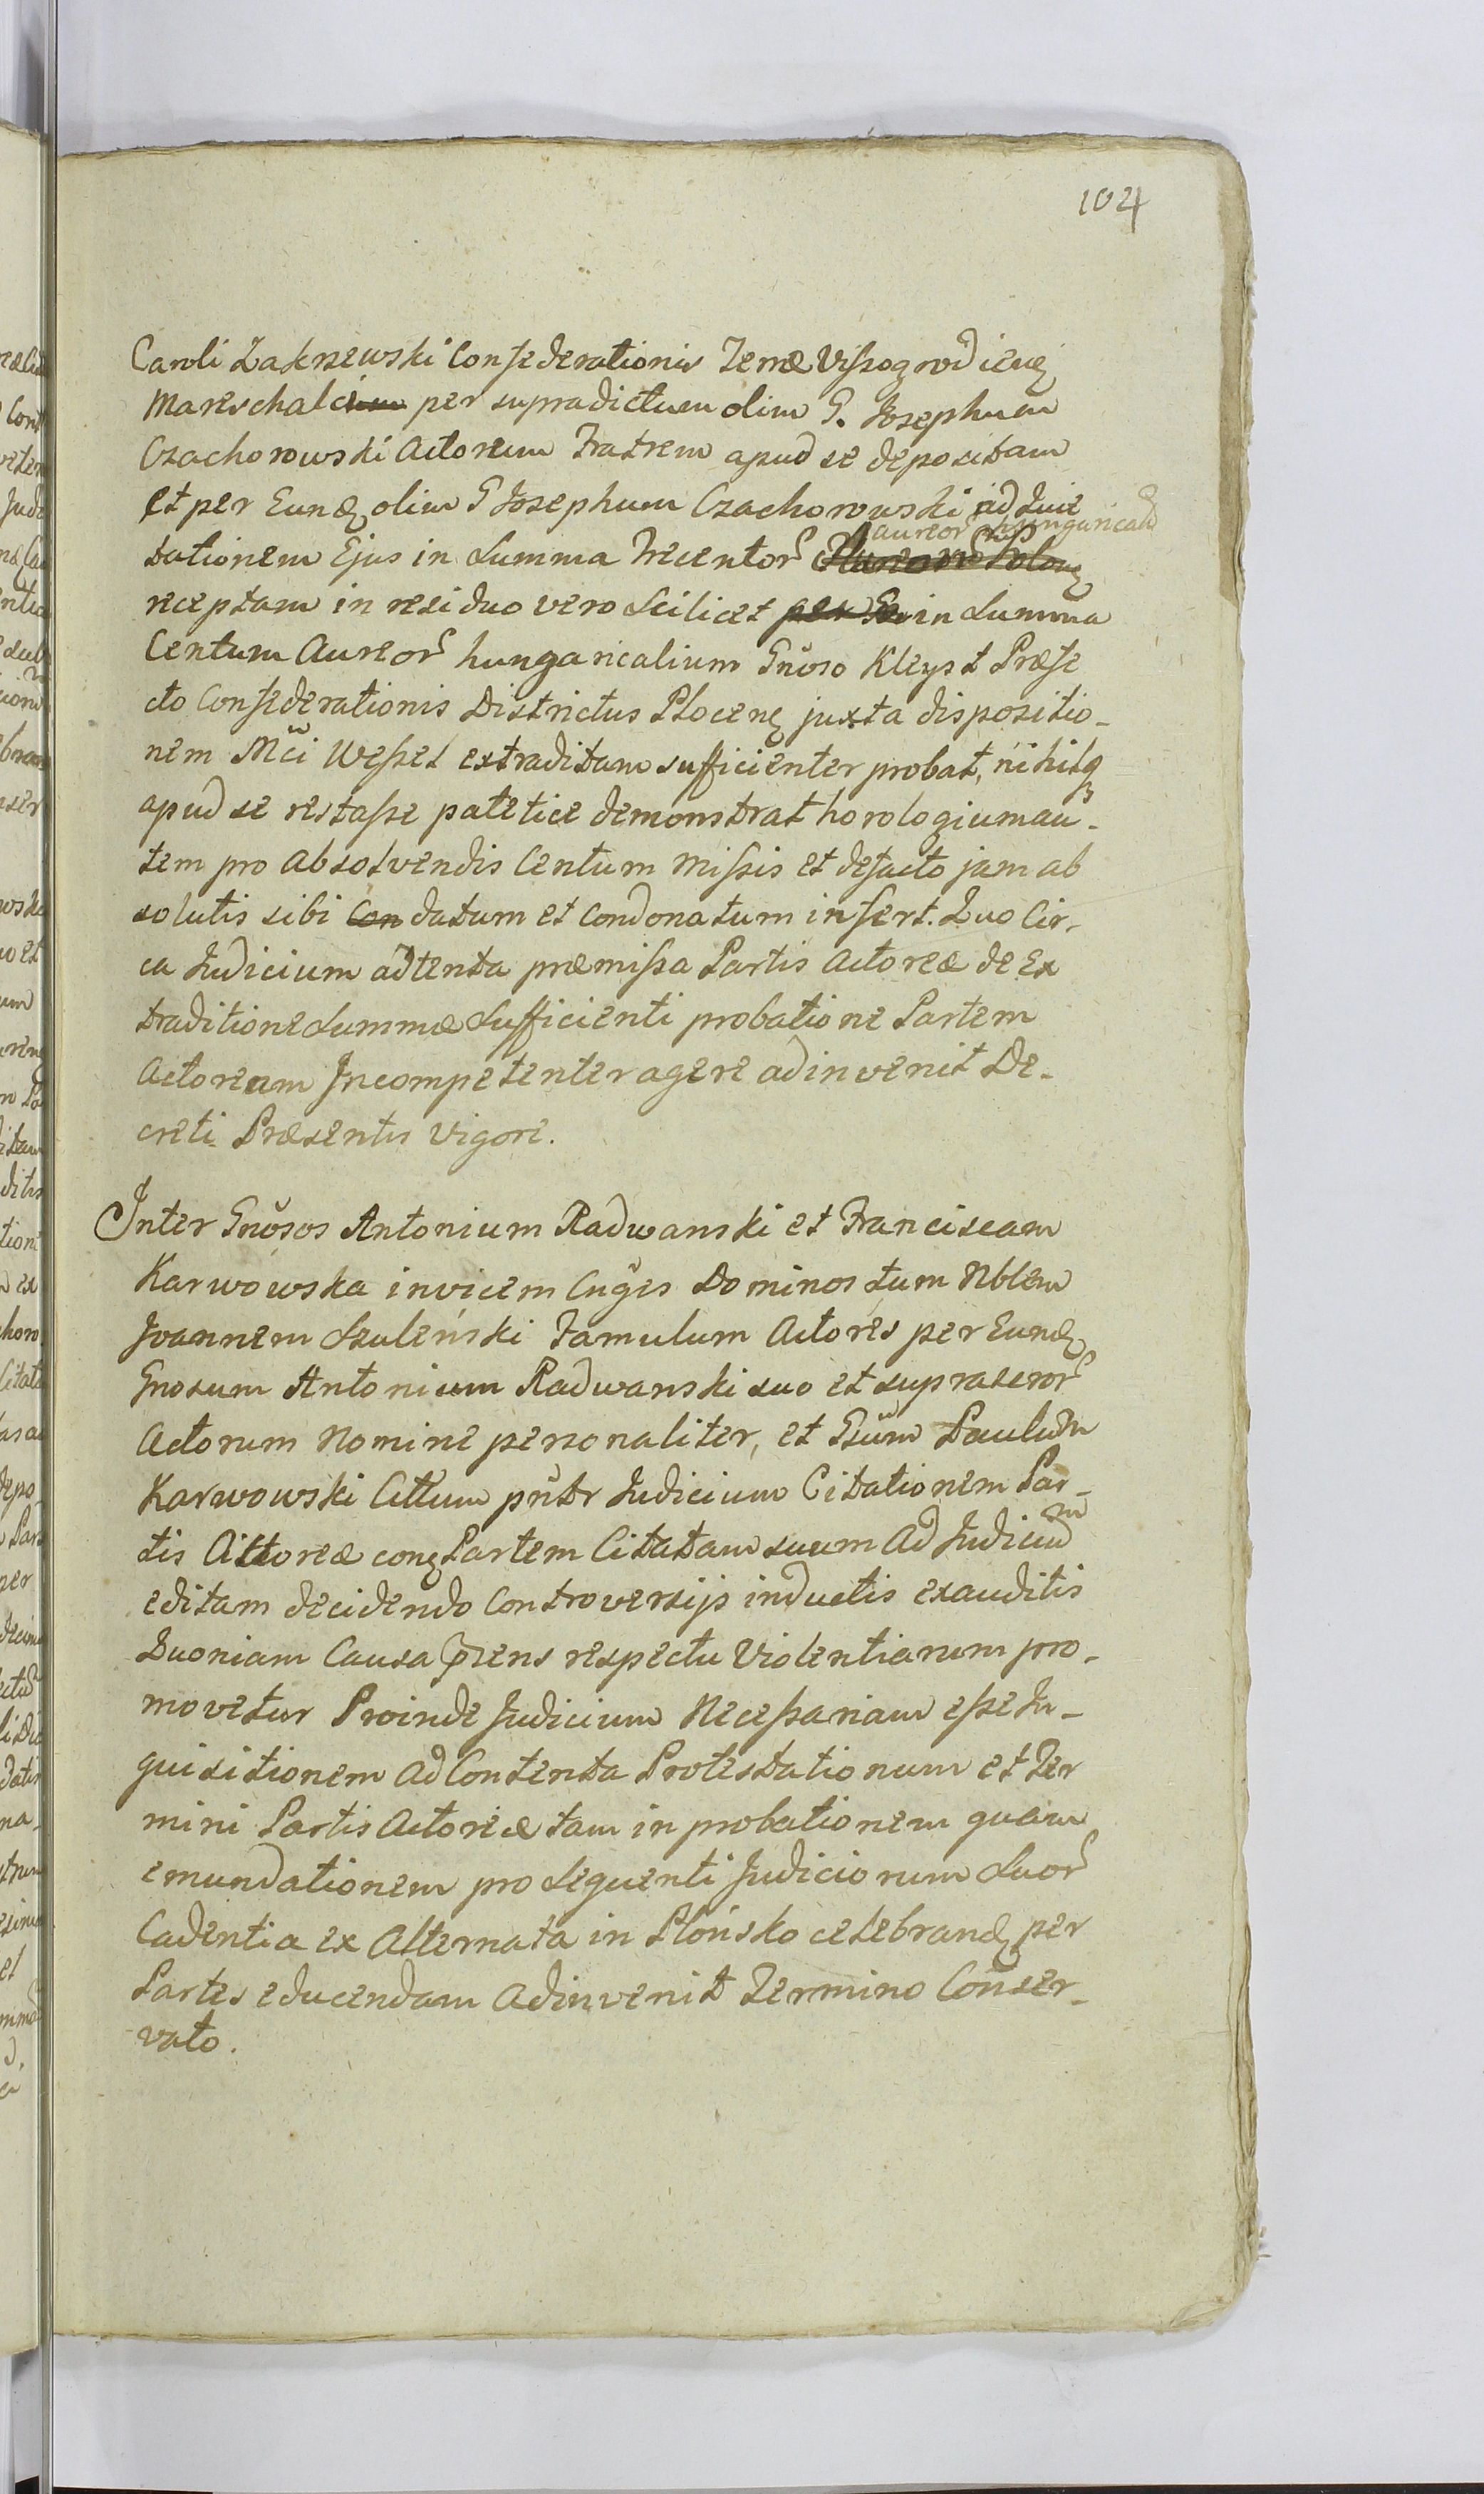 104
Caroli Zakrzewski Confederationis Terræ Vissogrodiens
Mareschalci per supradictum olim G. Josephum
Czachorowski Actoreum Fratrem apud se depositam
et per Eund olim G Josephum Czachorowski ad quie
aureor hungarical
tationem Ejus in Summa Trecentor Florenor Polon
receptam in residuo vero Scilicet per in Summa
Centum Aureor hungaricalium Gnoso Kleyst Præfe
cto Confederationis Districtus Plocens juxta dispositio-
nem Mci Wessel extraditam sufficienter probat, nihilq
apud se restasse patetice demonstrat horologium au-
tem pro Absolvendis Centum Missis et defacto jam ab
solutis sibi Con datum et Condonatum infert. Quo Cir-
ca Judicium adtenta præmissa Partis Actoreæ de Ex
traditione Summæ Sufficienti probatione Partem
Actoream Incompetenter agere adinvenit De-
creti Præsentis Vigore.
Inter Gnosos Antonium Radwanski et Franciscam
Karwowska invicem Cnges Dominos tum Nblem
Joannem Szuleński Famulum Actores per Eund
Gnosum Antonium Radwanski suo et supraseror
Actorum Nomine personaliter, et Gsum Paulum
Karwowski Cittum pntr Judicium Citationem Par-
tis Actoreæ con Partem Citatam suum Ad Judicium
editam decidendo Controversijs inductis exauditis
Quoniam Causa præns respectu Violentiarum pro-
movetur Proinde Judicium Necessariam esse In-
quisitionem Ad Contenta Protestationum et Ter
mini Partis Actoreæ tam in probationem quam
emundationem pro Sequenti Judiciorum Suor
Cadentia ex Alternata in Płońsko celebrand per
Partes educendam Adinvenit Termino Conser-
vato.